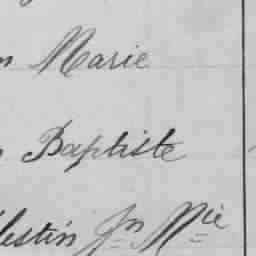 n Marie
Baptiste
lestin Jn Mie